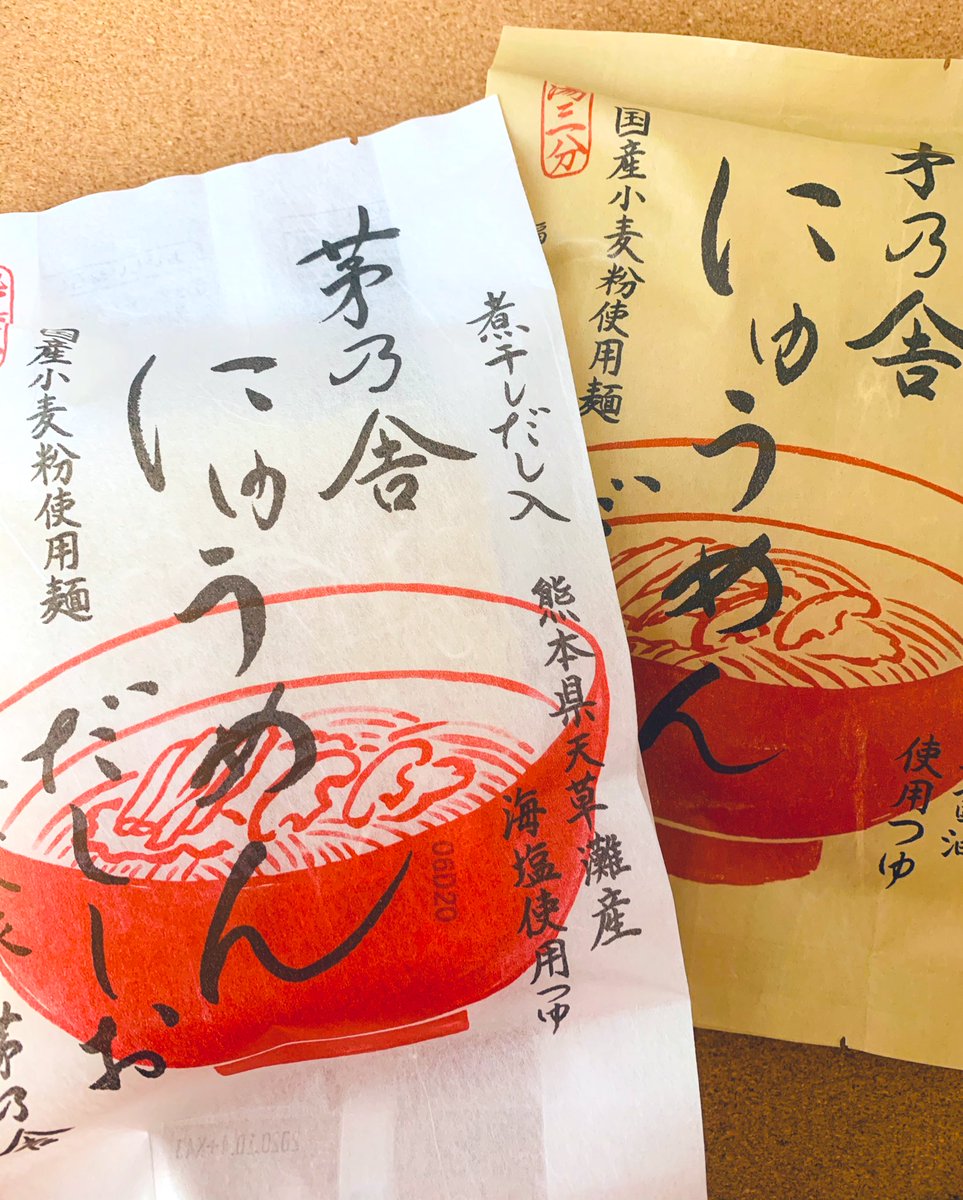 茅乃舎
煮干しだし入
にゅうめん
だししお
国産小麦粉使用麺
熊本県天草灘産
海塩使用つゆ
06D20
茅乃舎
茅乃舎
にゅうめん
国産小麦粉使用麺
湯三分
使用つゆ